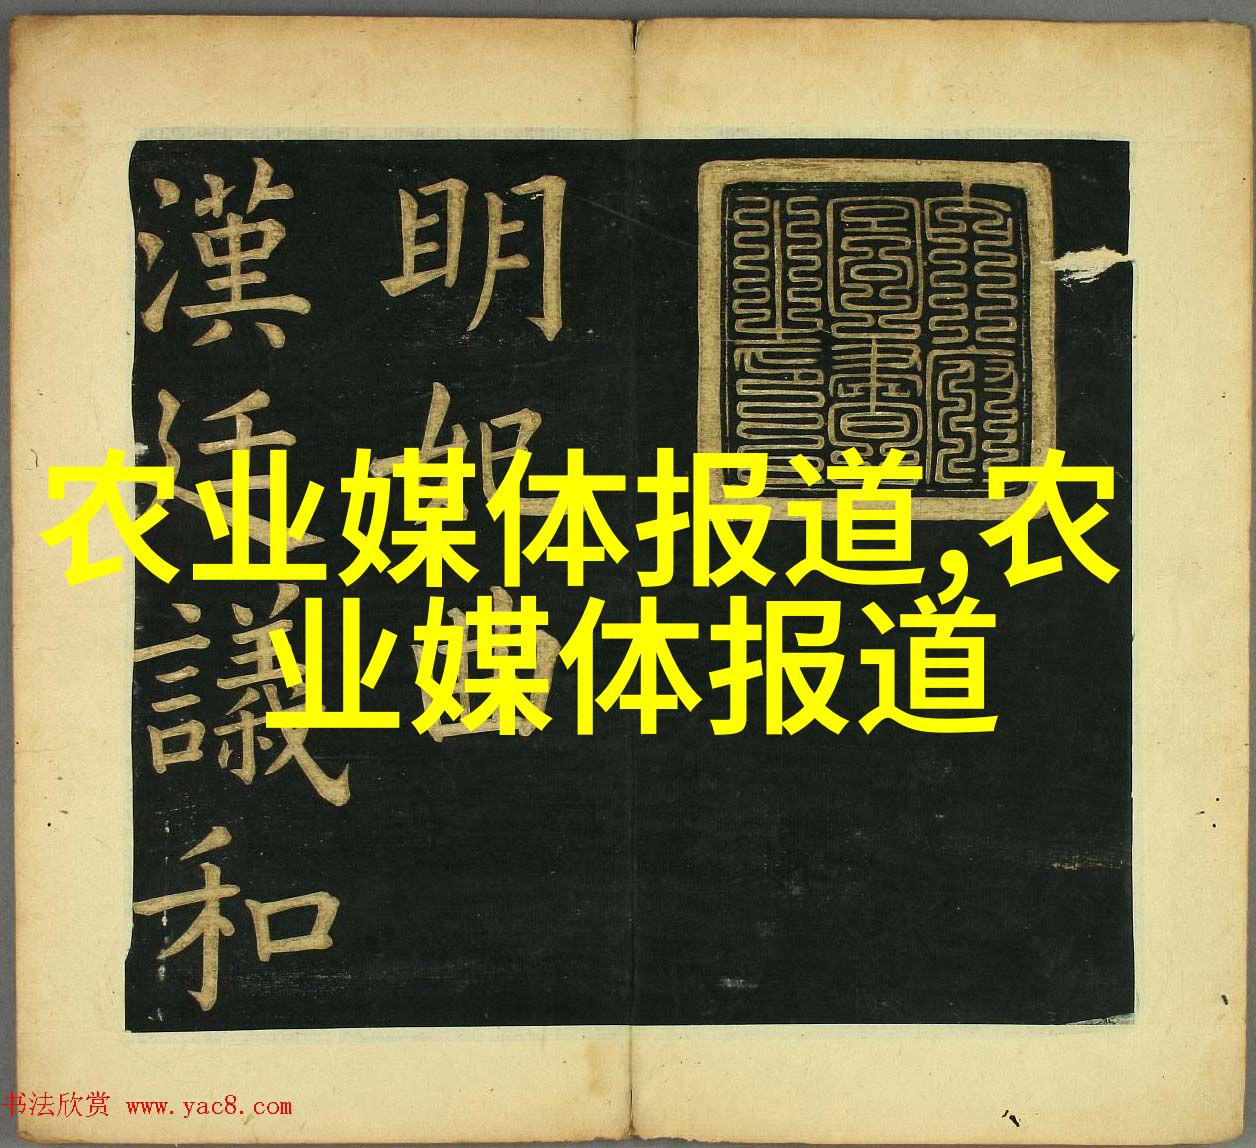 明妃曲
漢廷議和
农业媒体报道,农
业媒体报道
书法欣赏 www.yac8.com